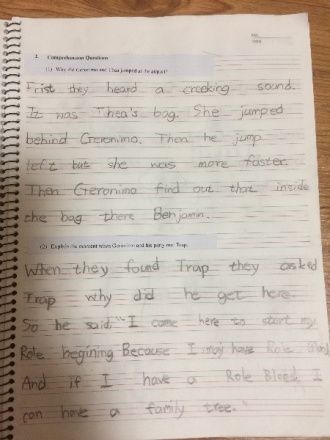 2. Comprehension Questions
(1) Why did Geronimo and Thea jumped at the airport?
Frist they heard a creeking sound.
It was Thea's bag. She jumped
behind Geronimo. Then he jump
left but she was more faster.
Then Geronimo find out that inside
the bag there Benjamin.
(2) Explain the moment when Geronimo and his party met Trap.
When they found Trap they asked
Trap why did he get here.
So he said. "I came here to start my
Role begining Because I may have Role
And if I have a Role Bleed I
can have a family tree."